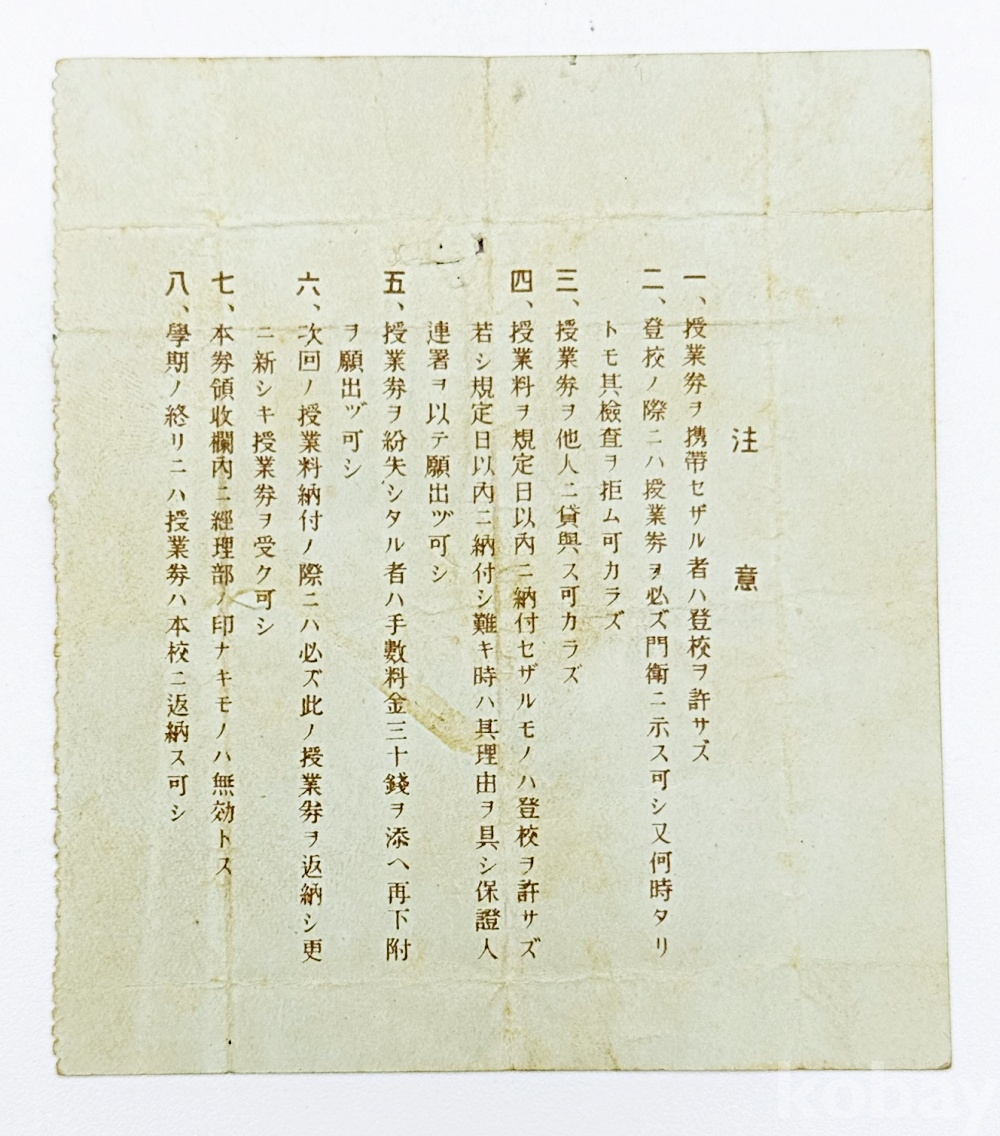 注意
一、授業券ヲ携帶セザル者ハ登校ヲ許サズ
二、登校ノ際ニハ授業券ヲ必ズ門衛ニ示ス可シ又何時タリ
トモ其檢査ヲ拒ム可カラズ
三、授業券ヲ他人ニ貸與ス可カラズ
四、授業料ヲ規定日以內ニ納付セザルモノハ登校ヲ許サズ
若シ規定日以內ニ納付シ難キ時ハ其理由ヲ具シ保證人
連署ヲ以テ願出ヅ可シ
五、授業券ヲ紛失シタル者ハ手數料金三十錢ヲ添ヘ再下附
ヲ願出ヅ可シ
六、次回ノ授業料納付ノ際ニハ必ズ此ノ授業券ヲ返納シ更
ニ新シキ授業券ヲ受ク可シ
七、本券領收欄內ニ經理部ノ印ナキモノハ無効トス
八、學期ノ終リニハ授業券ハ本校ニ返納ス可シ
kobay